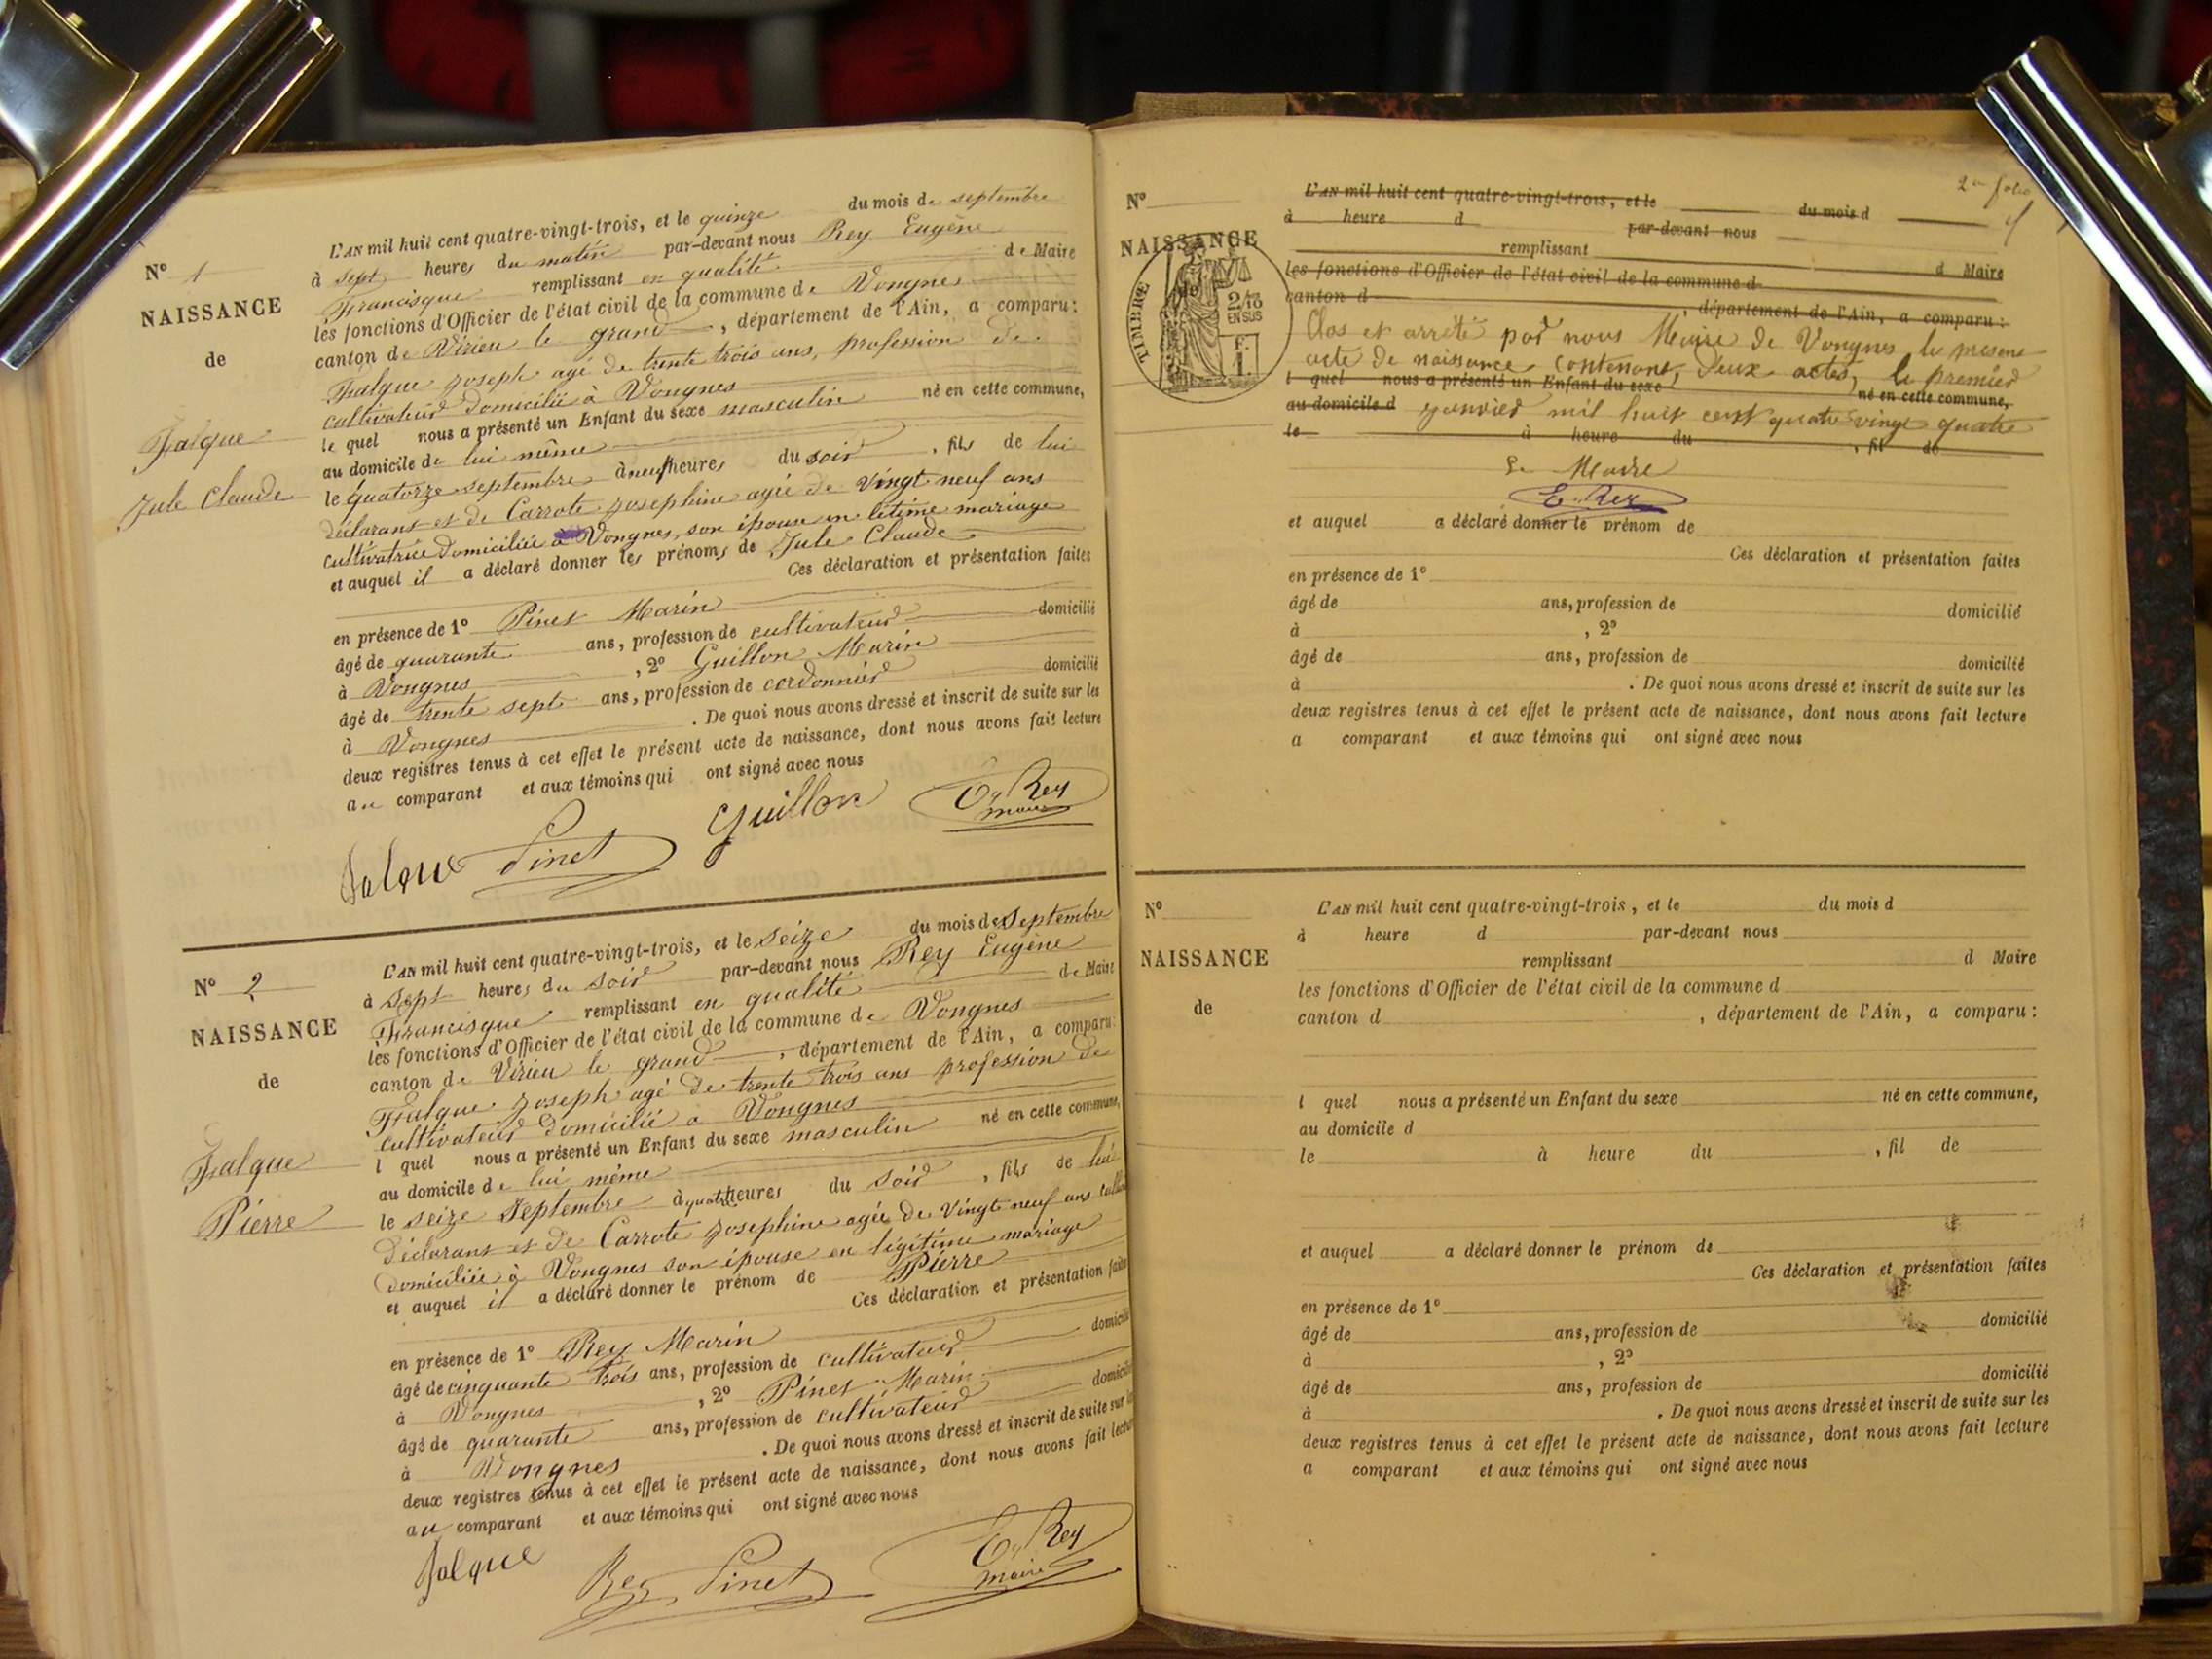 N° 1
NAISSANCE
de
Falque
Jule Claude
L'AN mil huit cent quatre-vingt-trois, et le quinze du mois de septembre
à sept heures du matin par-devant nous Rey Eugène
Francisque remplissant en qualité de Maire
les fonctions d'Officier de l'état civil de la commune de Vongnes
canton de Virieu le grand, département de l'Ain, a comparu:
Falque Joseph agé de trente trois ans, profession de
cultivateur domicilié à Vongnes
le quel nous a présenté un Enfant du sexe masculin né en cette commune,
au domicile de lui même
le quatorze septembre à neuf heures du soir, fils de lui
déclarant et de Carrote Josephine agée de vingt neuf ans
cultivatrice domiciliée à Vongnes, son épouse en létime mariage
et auquel il a déclaré donner les prénoms de Jule Claude
Ces déclaration et présentation faites
en présence de 1° Pinet Marin
âgé de quarante ans, profession de cultivateur domicilié
à Vongnes, 2° Guillon Marin
âgé de trente sept ans, profession de cordonnier domicilié
à Vongnes. De quoi nous avons dressé et inscrit de suite sur les
deux registres tenus à cet effet le présent acte de naissance, dont nous avons fait lecture
au comparant et aux témoins qui ont signé avec nous
Falque Pinet Guillon E. Rey
maire
N° 2
NAISSANCE
de
Falque
Pierre
L'AN mil huit cent quatre-vingt-trois, et le seize du mois de Septembre
à sept heures du soir par-devant nous Rey Eugène
Francisque remplissant en qualité de Maire
les fonctions d'Officier de l'état civil de la commune de Vongnes
canton de Virieu le grand, département de l'Ain, a comparu:
Falque Joseph agé de trente trois ans profession de
cultivateur domicilié à Vongnes
l quel nous a présenté un Enfant du sexe masculin né en cette commune,
au domicile de lui même
le seize Septembre à quatre heures du soir, fils de lui
déclarant et de Carrote Josephine agée de vingt neuf ans
domiciliée à Vongnes son épouse en légitime mariage
et auquel il a déclaré donner le prénom de Pierre
Ces déclaration et présentation faites
en présence de 1° Rey Marin
âgé de cinquante trois ans, profession de cultivateur domicilié
à Vongnes, 2° Pinet Marin
âgé de quarante ans, profession de cultivateur domicilié
à Vongnes. De quoi nous avons dressé et inscrit de suite sur les
deux registres tenus à cet effet le présent acte de naissance, dont nous avons fait lecture
au comparant et aux témoins qui ont signé avec nous
Falque Rey Pinet E. Rey
maire
2me folio
N°
NAISSANCE
de
TIMBRE
2/10
EN SUS
F.
1.
L'AN mil huit cent quatre-vingt-trois, et le du mois d
à heure d par-devant nous
remplissant d Maire
les fonctions d'Officier de l'état civil de la commune d
canton d, département de l'Ain, a comparu:
Clos et arrêté par nous Maire de Vongnes le présent
acte de naissance contenant deux actes, le premier
l quel nous a présenté un Enfant du sexe né en cette commune,
au domicile d janvier mil huit cent quatre vingt quatre
le à heure du, fil de
Le Maire
E. Rey
et auquel a déclaré donner le prénom de
Ces déclaration et présentation faites
en présence de 1°
âgé de ans, profession de domicilié
à, 2°
âgé de ans, profession de domicilié
à. De quoi nous avons dressé et inscrit de suite sur les
deux registres tenus à cet effet le présent acte de naissance, dont nous avons fait lecture
a comparant et aux témoins qui ont signé avec nous
N°
NAISSANCE
de
L'AN mil huit cent quatre-vingt-trois, et le du mois d
à heure d par-devant nous
remplissant d Maire
les fonctions d'Officier de l'état civil de la commune d
canton d, département de l'Ain, a comparu:
l quel nous a présenté un Enfant du sexe né en cette commune,
au domicile d
le à heure du, fil de
et auquel a déclaré donner le prénom de
Ces déclaration et présentation faites
en présence de 1°
âgé de ans, profession de domicilié
à, 2°
âgé de ans, profession de domicilié
à. De quoi nous avons dressé et inscrit de suite sur les
deux registres tenus à cet effet le présent acte de naissance, dont nous avons fait lecture
a comparant et aux témoins qui ont signé avec nous